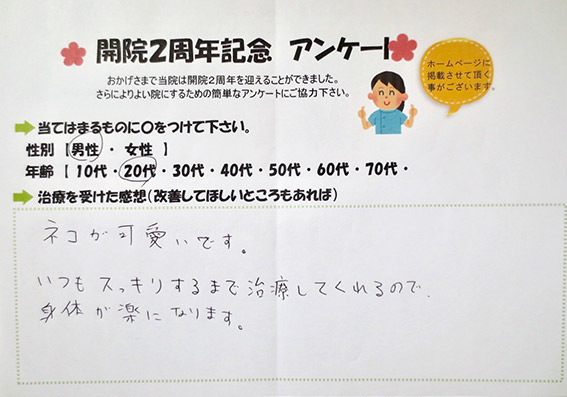 開院2周年記念 アンケート
おかげさまで当院は開院2周年を迎えることができました。
さらによりよい院にするための簡単なアンケートにご協力下さい。
ホームページに
掲載させて頂く
事がございます。
当てはまるものに〇をつけて下さい。
性別 【 男性 ・ 女性 】
年齢 【 10代 ・ 20代 ・ 30代 ・ 40代 ・ 50代 ・ 60代 ・ 70代 ・
治療を受けた感想(改善してほしいところもあれば)
ネコが可愛いです。
いつもスッキリするまで治療してくれるので、
身体が楽になります。